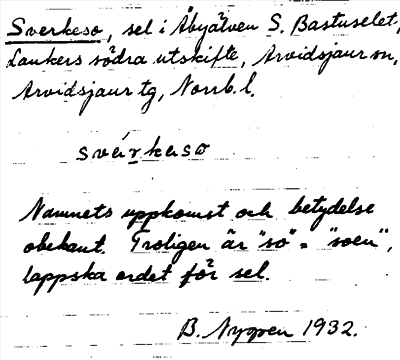 Sverkeso, sel i Åbyälven S. Bastuselet,
Laukers södra utskifte, Arvidsjaur sn,
Arvidsjaur tg, Norrb. l.
svérkaso
Namnets uppkomst och betydelse
obekant. Troligen är "so" = "soen",
lappska ordet för sel.
B. Nygren 1932.